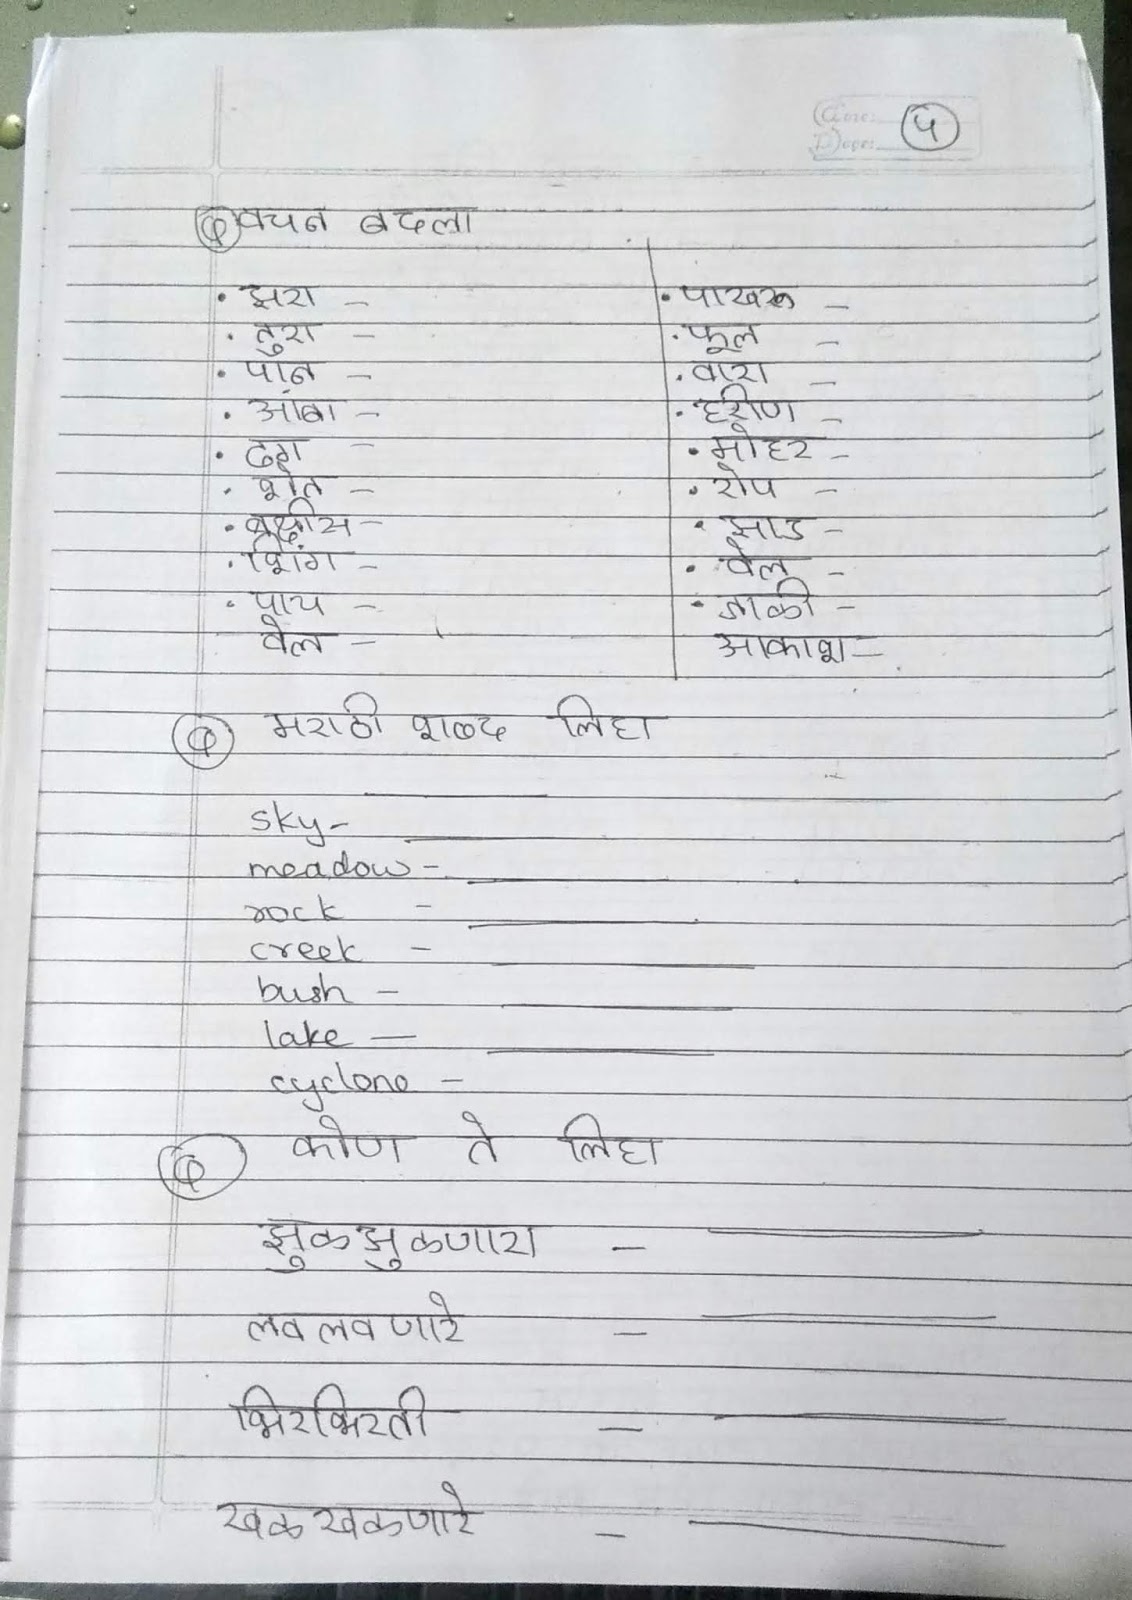 ५
वचन बदला
• झरा –
• तुरा –
• पान –
• आंबा –
• ढग –
• शेत –
• बक्षीस –
• शिंग –
• पाय –
वेल –
• पाखरू –
• फूल –
• वारा –
• हरीण –
• मोहर –
• रोप –
• झाड –
• वेल –
• जाळी –
आकाश –
मराठी शब्द लिहा
sky –
meadow –
rock –
creek –
bush –
lake –
cyclone –
कोण ते लिहा
झुळझुळणारा –
लवलवणारे –
भिरभिरती –
खळखळणारे –